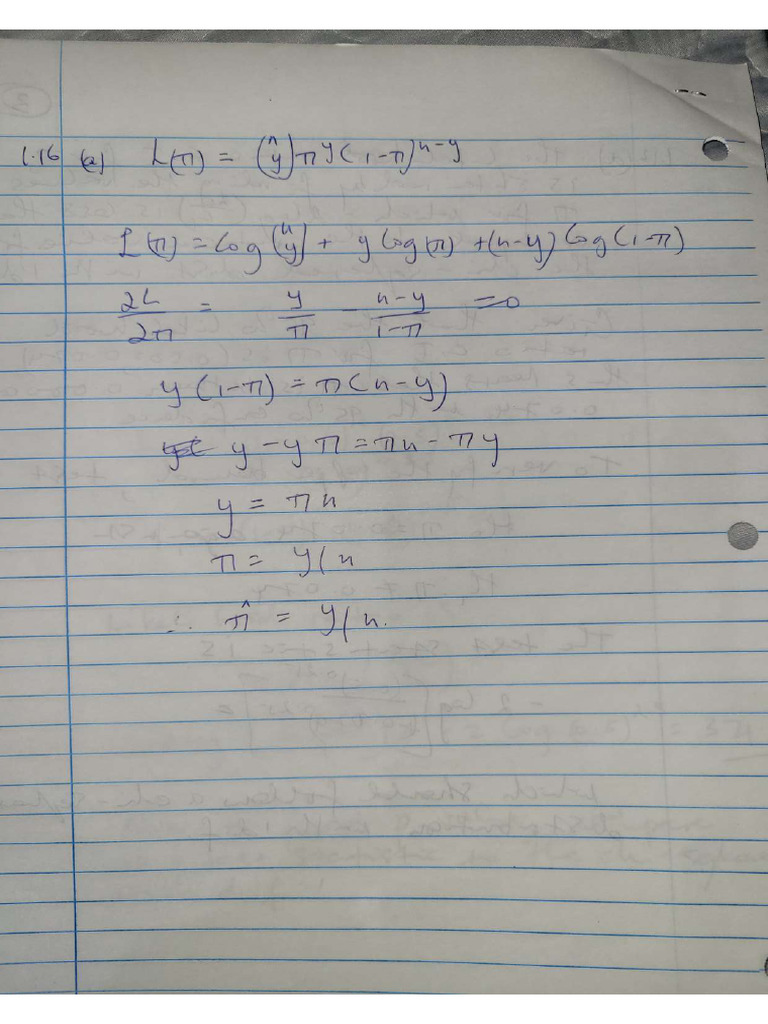 1.16 (a) L(π) = (n y) π^y (1-π)^{n-y}
L(π) = log (n y) + y log(π) + (n-y) log (1-π)
∂L/∂π = y/π - n-y/1-π = 0
y (1-π) = π(n-y)
y - yπ = πn - πy
y = πn
π = y/n
∴ π̂ = y/n.